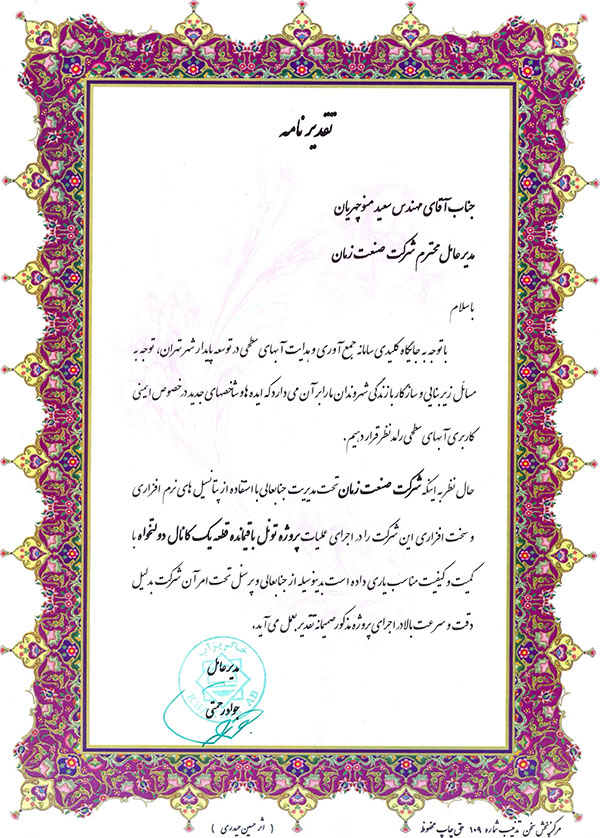 تقدیرنامه
جناب آقای مهندس سعید منوچهریان
مدیرعامل محترم شرکت صنعت زمان
باسلام
باتوجه به جایگاه کلیدی سامانه جمع آوری و هدایت آبهای سطحی در توسعه پایدار شهر تهران، توجه به
مسائل زیربنایی و سازگار با زندگی شهروندان ما را بر آن می دارد که ایده ها و شاخصهای جدید در خصوص ایمنی
کاربری آبهای سطحی را مد نظر قرار دهیم.
حال نظر به اینکه شرکت صنعت زمان تحت مدیریت جنابعالی با استفاده از پتانسیل های نرم افزاری
و سخت افزاری این شرکت را در اجرای عملیات پروژه تونل باقیمانده قطعه یک کانال دولتخواه با
کمیت و کیفیت مناسب یاری داده است بدینوسیله از جنابعالی و پرسنل تحت امر آن شرکت بدلیل
دقت و سرعت بالا در اجرای پروژه مذکور صمیمانه تقدیر بعمل می آید.
خاکریز آب
مدیرعامل
KH AB
جواد رحمتی
مرکز پخش سخن تذهیب شماره ۱۰۹ حق چاپ محفوظ
( اثر حسین حیدری )